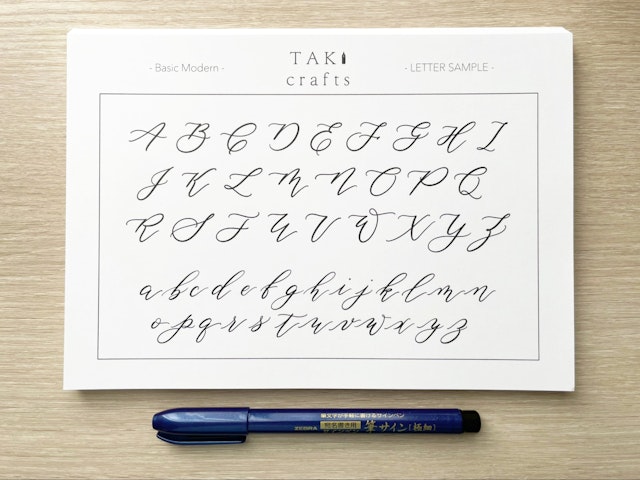 - Basic Modern -
TAKI
crafts
- LETTER SAMPLE -
A B C D E F G H I
J K L M N O P Q
R S T U V W X Y Z
a b c d e f g h i j k l m n
o p q r s t u v w x y z
筆文字が手軽に書けるサインペン
ZEBRA 宛名書き用 筆サイン[極細]